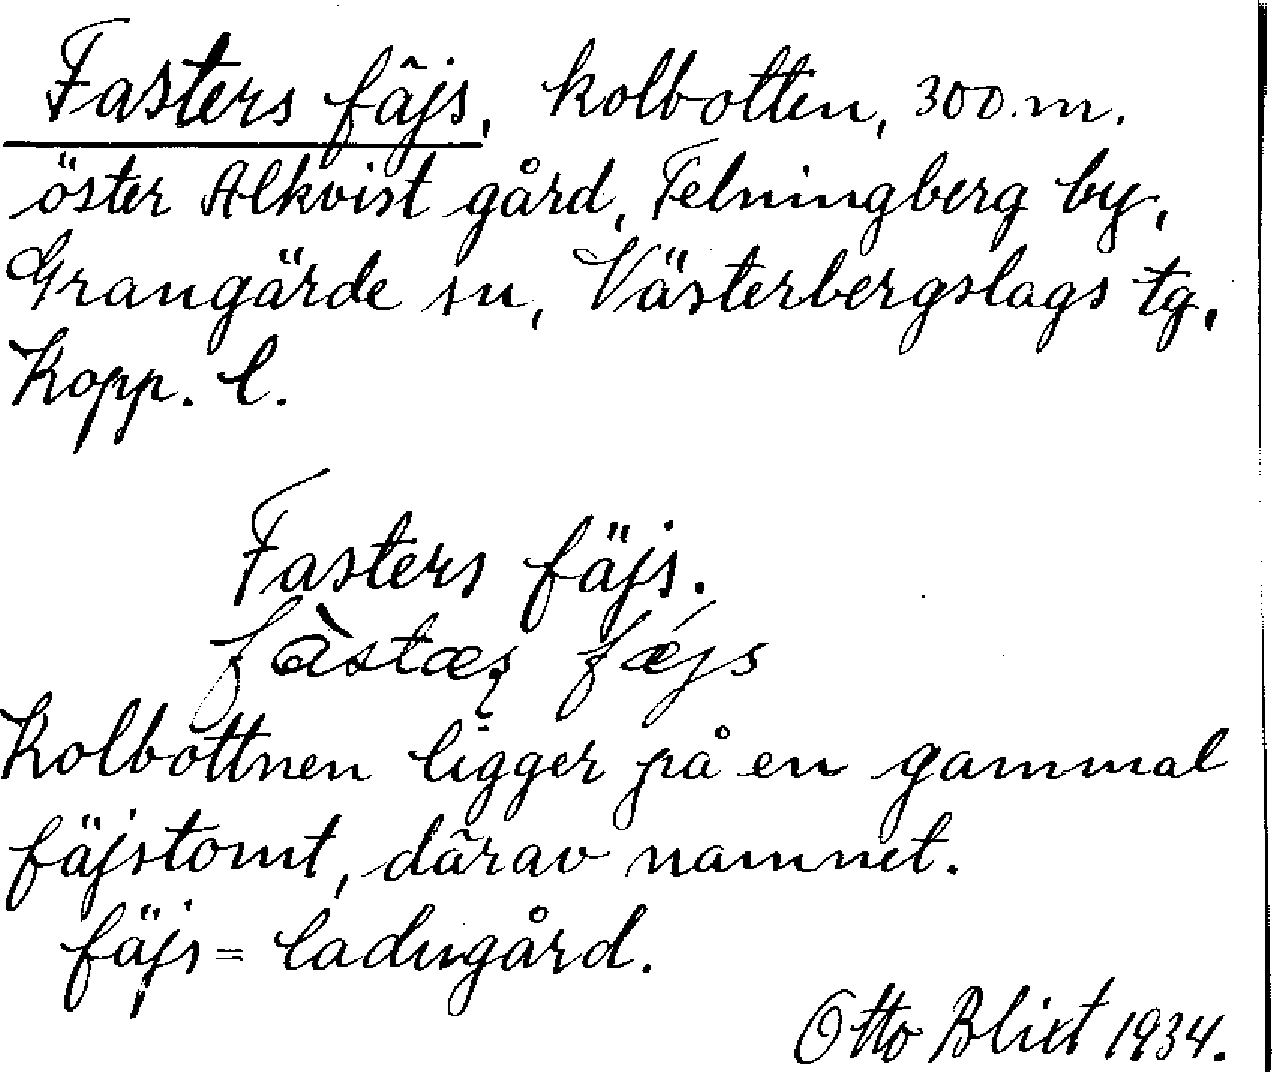 Fasters fäjs, kolbotten, 300 m.
öster Alkvist gård, Felningberg by,
Grangärde sn, Västerbergslags tg,
Kopp. l.
Fasters fäjs.
fàstæʂ fǽjs
Kolbottnen ligger på en gammal
fäjstomt, därav namnet.
fäjs = ladugård.
Otto Blixt 1934.